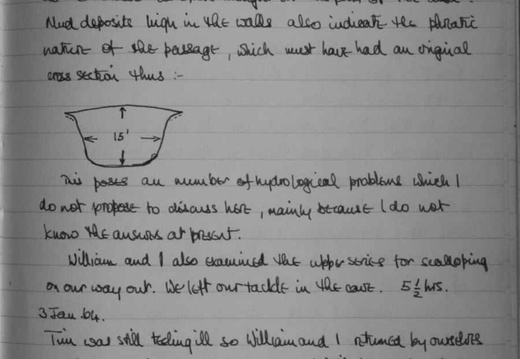 Mud deposits high in the walls also indicate the phratic
nature of the passage, which must have had an original
cross section thus :-
15'
This poses an number of hydrological problems which I
do not propose to discuss here, mainly because I do not
know the answers at present.
William and I also examined the upper series for scalloping
on our way out. We left our tackle in the cave. 5½ hrs.
3 Jan 64.
Tim was still feeling ill so William and I returned by ourselves